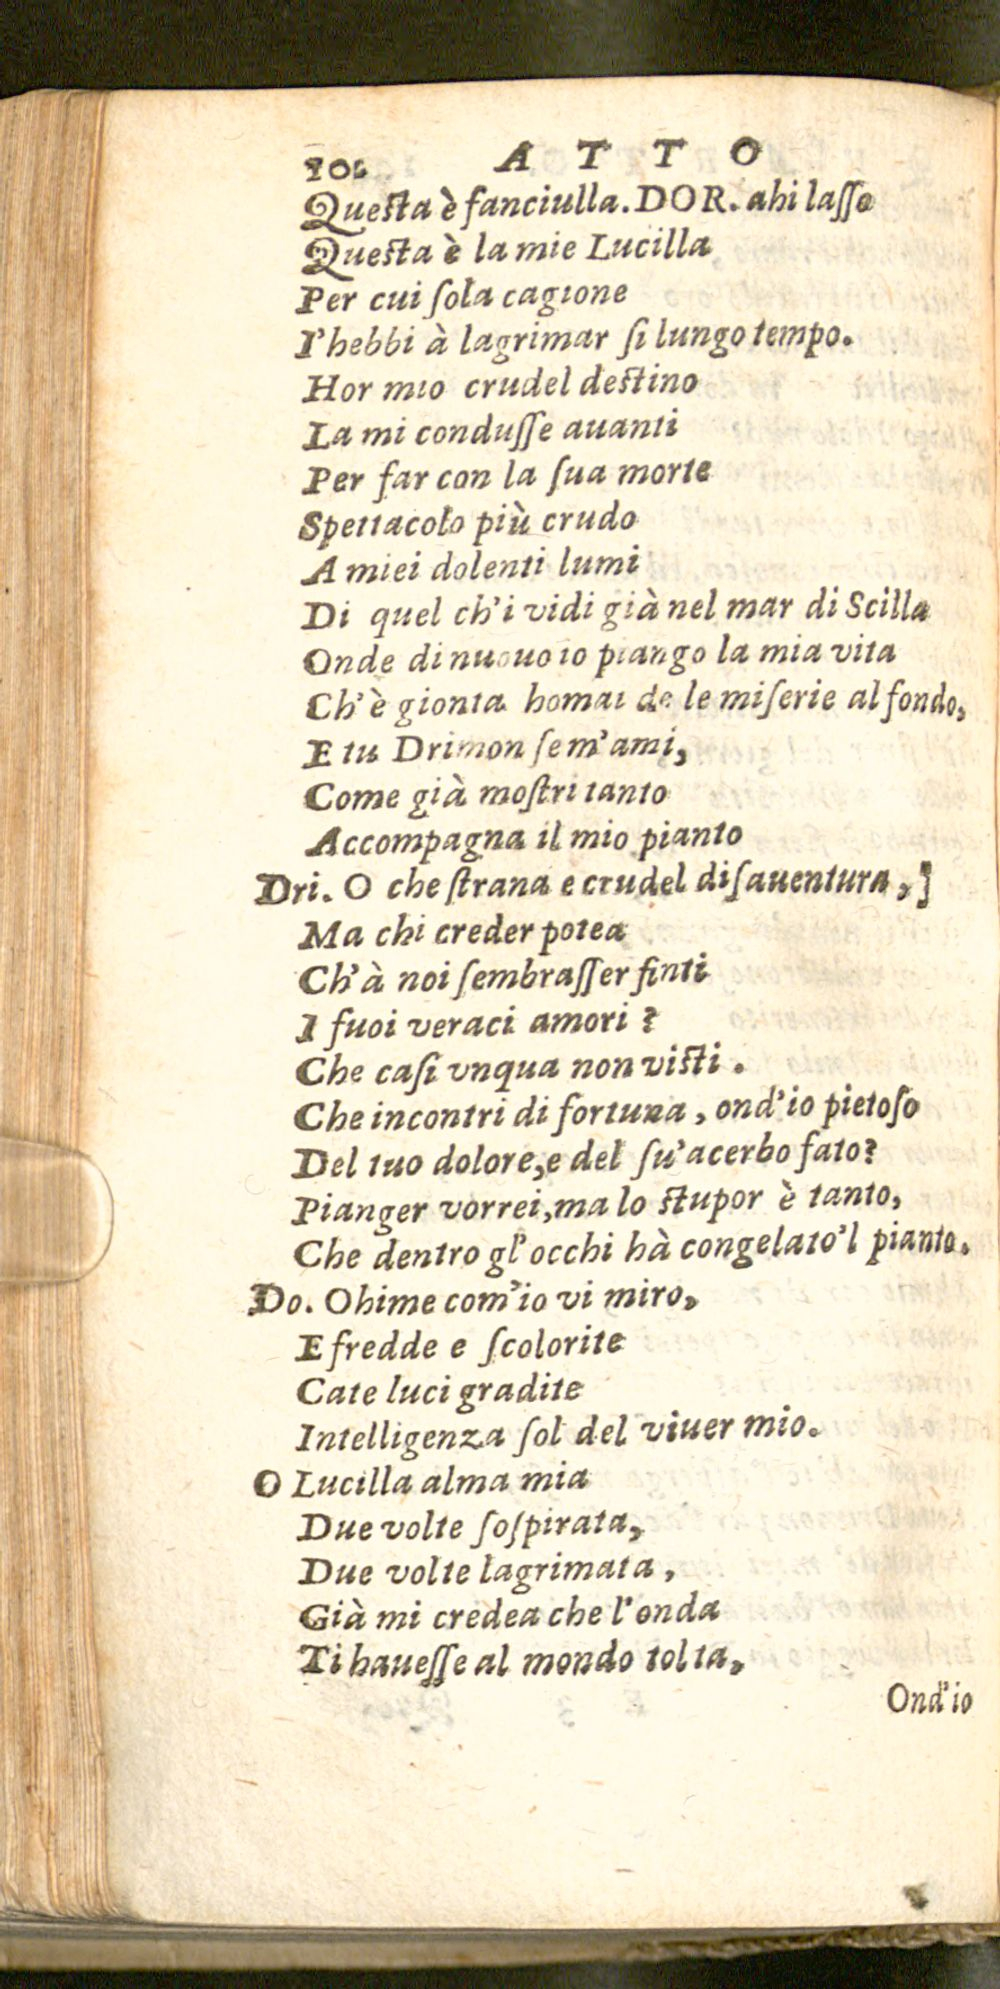 102 A T T O
Queſta è fanciulla. DOR. ahi laſſo
Queſta è la mie Lucilla
Per cui ſola cagione
I'hebbi à lagrimar ſi lungo tempo.
Hor mio crudel deſtino
La mi conduſſe auanti
Per far con la ſua morte
Spettacolo più crudo
A miei dolenti lumi
Di quel ch'i vidi già nel mar di Scilla
Onde di nuouo io piango la mia vita
Ch'è gionta homai de le miſerie al fondo,
E tu Drimon ſe m'ami,
Come già moſtri tanto
Accompagna il mio pianto
Dri. O che ſtrana e crudel diſauentura, ]
Ma chi creder potea
Ch'à noi ſembraſſer finti
I fuoi veraci amori?
Che caſi vnqua non viſti.
Che incontri di fortuna, ond'io pietoſo
Del tuo dolore, e del ſu'acerbo fato?
Pianger vorrei, ma lo ſtupor è tanto,
Che dentro gl'occhi hà congelato'l pianto.
Do. Ohime com'io vi miro,
E fredde e ſcolorite
Cate luci gradite
Intelligenza ſol del viuer mio.
O Lucilla alma mia
Due volte ſoſpirata,
Due volte lagrimata,
Già mi credea che l'onda
Ti haueſſe al mondo tolta,
Ond'io